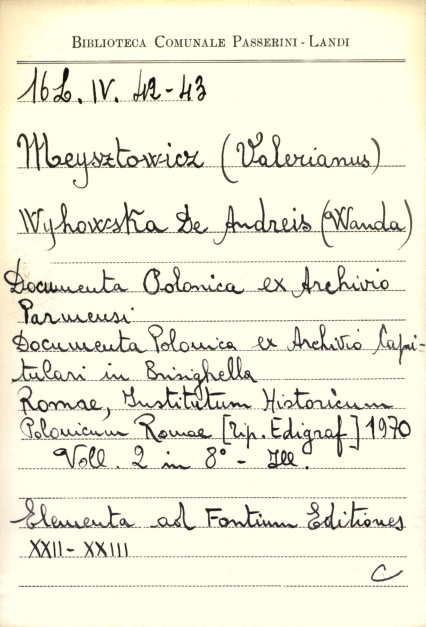 BIBLIOTECA COMUNALE PASSERINI - LANDI
16L. IV. 42-43
Meysztowicz (Valerianus)
Wyhowska De Andreis (Wanda)
Documenta Polonica ex Archivio
Parmensi
Documenta Polonica ex Archivio Capi-
tulari in Brisighella
Romae, Institutum Historicum
Polonicum Romae [tip. Edigraf] 1970
Voll. 2 in 8° - Ill.
Elementa ad Fontium Editiones
XXII - XXIII
C